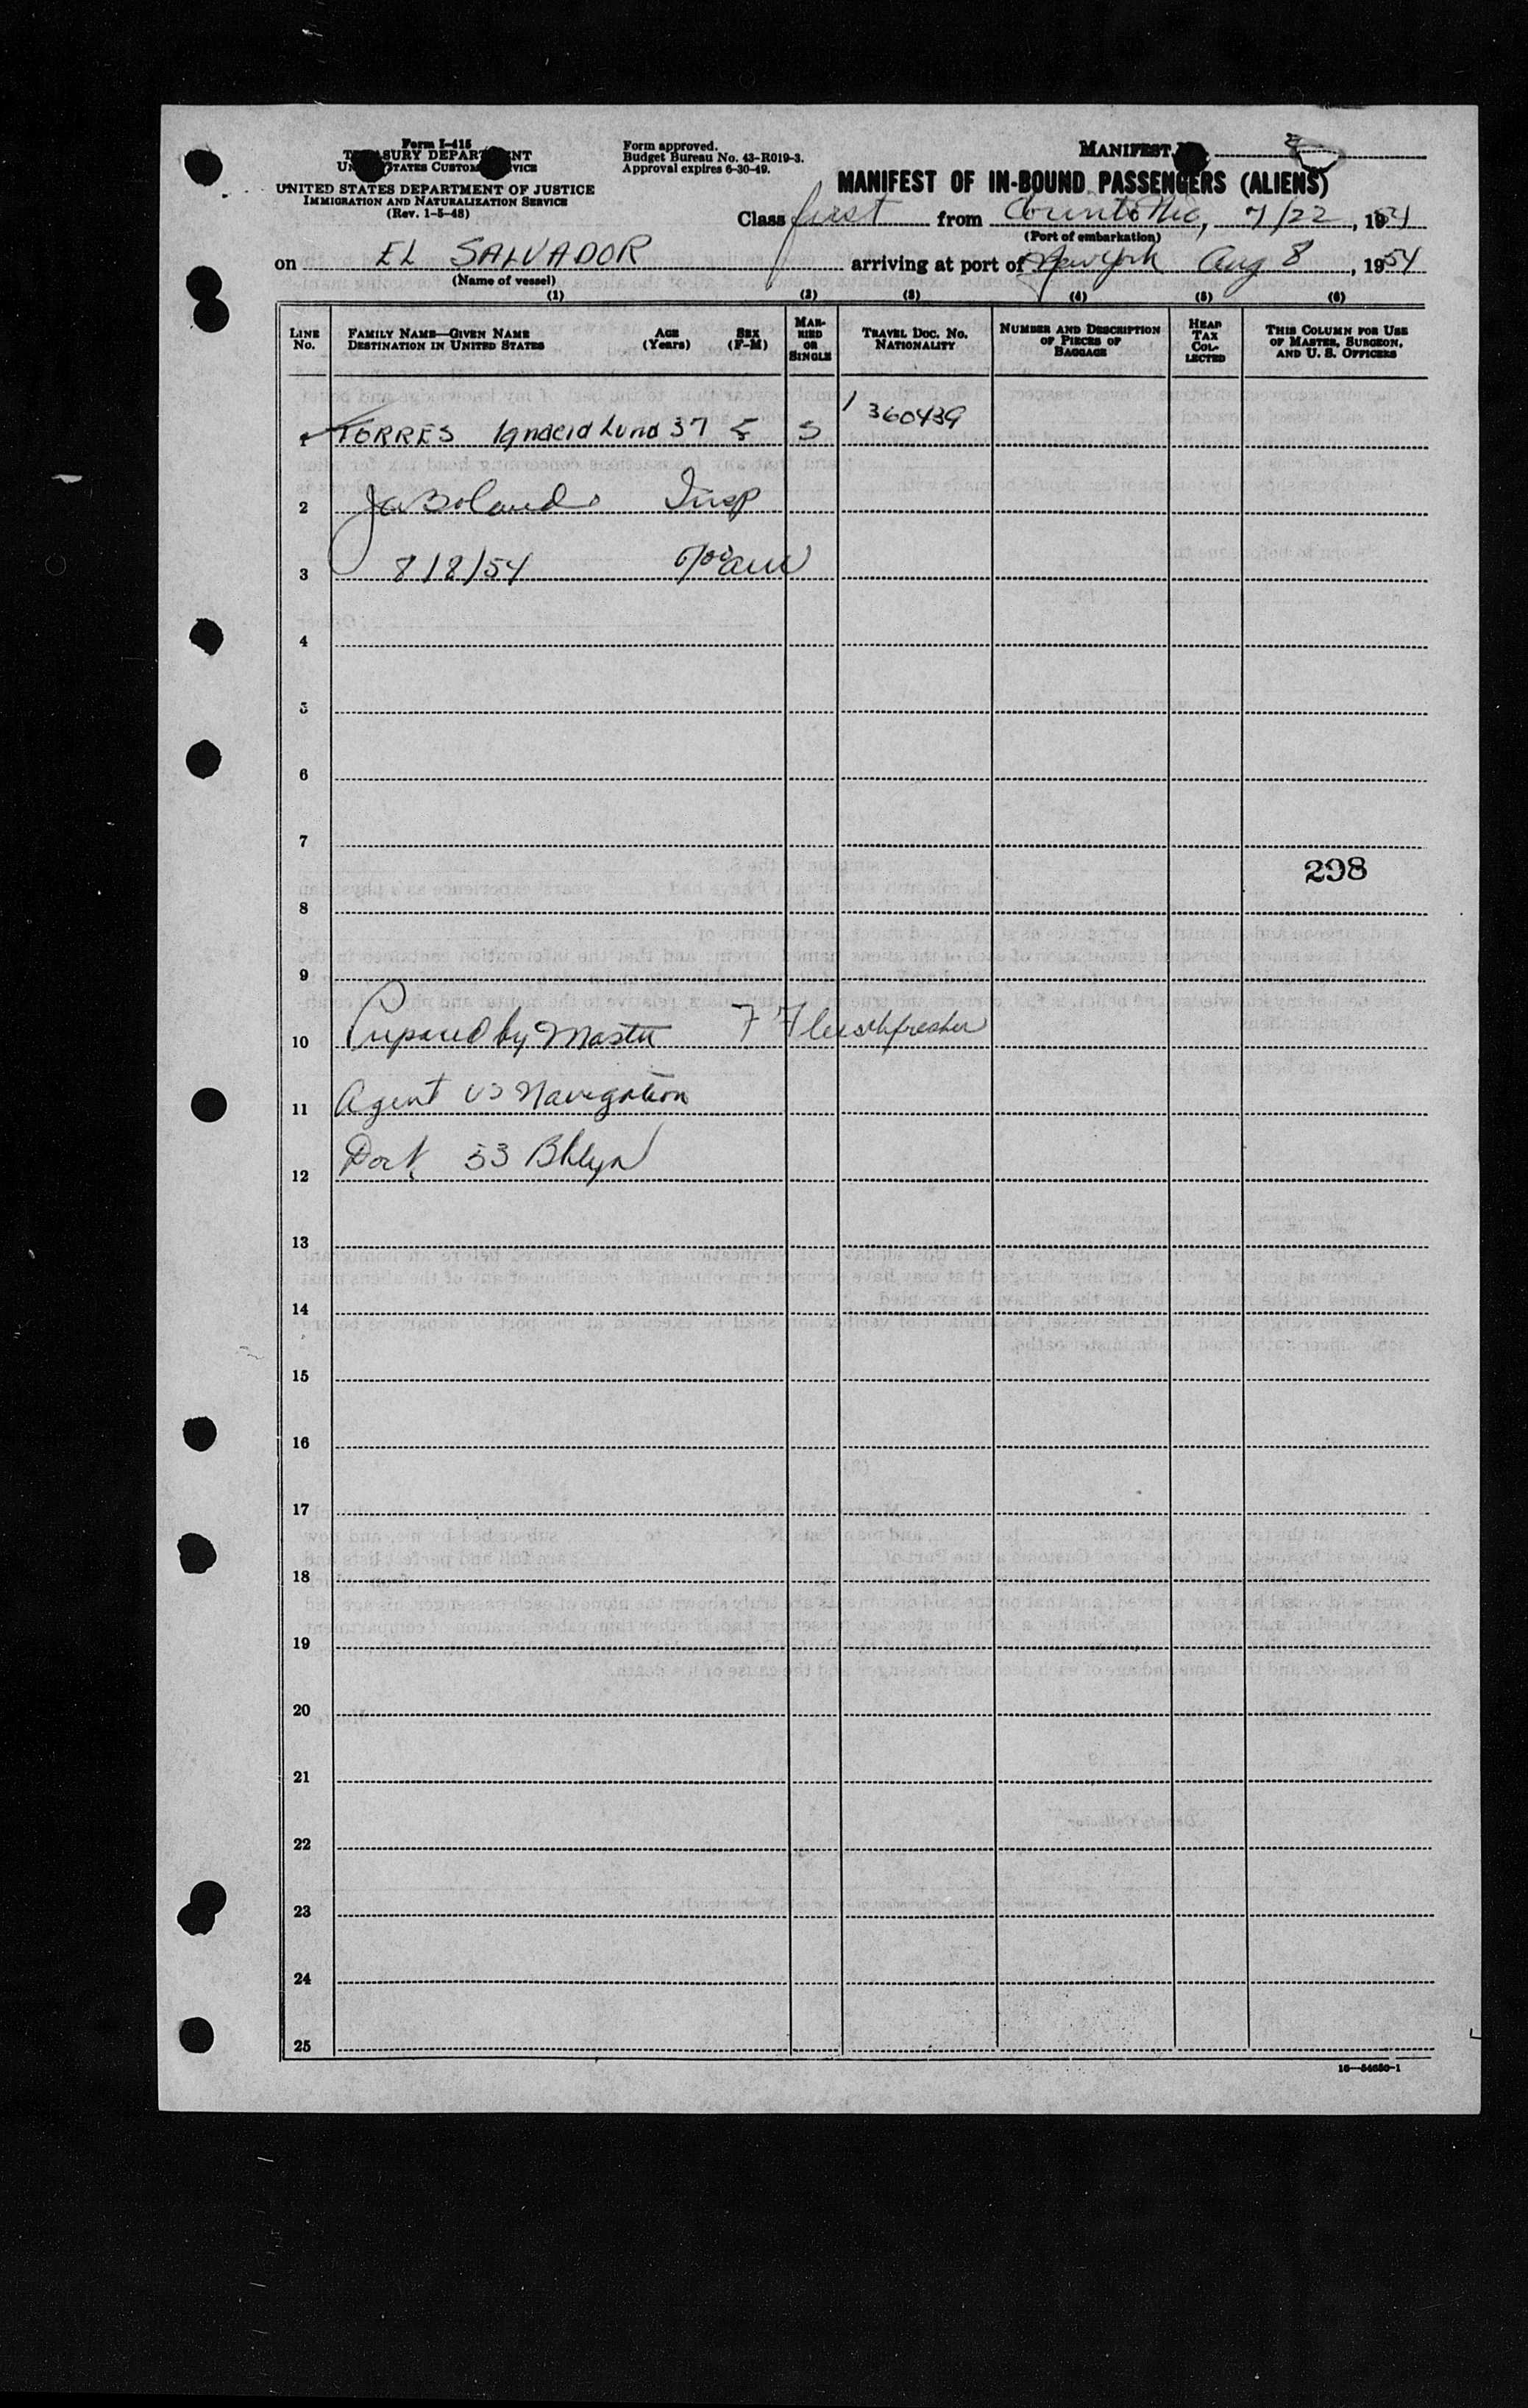 Form I-415
TREASURY DEPARTMENT
UNITED STATES CUSTOMS SERVICE
UNITED STATES DEPARTMENT OF JUSTICE
IMMIGRATION AND NATURALIZATION SERVICE
(Rev. 1-5-48)
Form approved.
Budget Bureau No. 43-R019-3.
Approval expires 6-30-49.
MANIFEST
MANIFEST OF IN-BOUND PASSENGERS (ALIENS)
Class first from Corinto Nic, 7/22, 1954
(Port of embarkation)
on EL SALVADOR arriving at port of New York Aug 8, 1954
(Name of vessel)
(1) (2) (3) (4) (5) (6)
LINE No. FAMILY NAME—GIVEN NAME DESTINATION IN UNITED STATES AGE (Years) SEX (F-M) MARRIED OR SINGLE TRAVEL DOC. No. NATIONALITY NUMBER AND DESCRIPTION OF PIECES OF BAGGAGE HEAD TAX COLLECTED THIS COLUMN FOR USE OF MASTER, SURGEON, AND U. S. OFFICERS
1 TORRES Ignacia Luna 37 F S 1360439
2 Insp
3 8/8/54
4
5
6
7
298
8
9
10 Prepared by Master F
11 Agent US Navigation
12 Dock 33 Bklyn
13
14
15
16
17
18
19
20
21
22
23
24
25